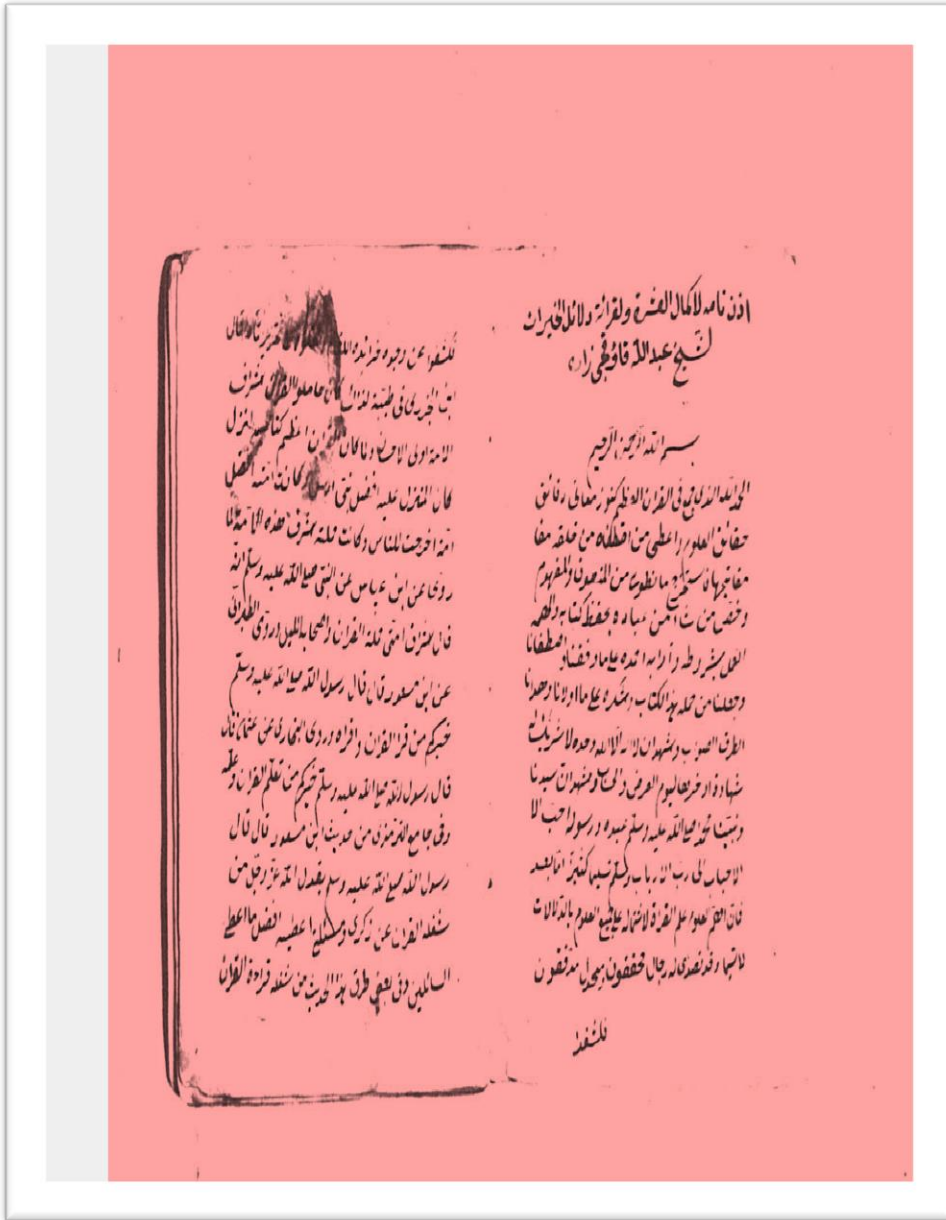 اذن نامه لاكمال العشرة ولقرائة دلائل الخيرات
لشيخ عبد الله زاده
بسم الله الرحمن الرحيم
الحمد لله الذى فى القران العظيم كنوز معانى دقائق
حقائق العلوم واعطى من من خلقه مفا
مفاتيحها من المذهون والمفهوم
وخص من شآء من عباده بحفظ كتابه والهمه
العمل بشروطه وآدابه احمده على ما وفقنا واصطفانا
وجعلنا من حملة هذا الكتاب ونشكره على ما اولانا وهدانا
الطرق الصوب ونشهد ان لا اله الا الله وحده لا شريك له
شهادة ليوم العرض ونشهد ان سيدنا
ونبينا محمدا صلى الله عليه وسلم عبده ورسوله احب الا
الاحباب الى رب الارباب وسلم تسليما كثيرا اما بعد
فان العلوم علم القراة لاشتماله على جميع العلوم بالدلالات
لاسيما وقد تصدى له رجال محققون مدققون
فكشفوا عن وجوه قال
ابن الجزرى فى طيبة لذاك كان حاملو القران اشراف
الامة اولى الاحسان ولما كان القران اعظم كتاب انزل
كان المنزل عليه افضل نبى ارسل وكانت امته افضل
امة اخرجت للناس وكانت حملة
روى عن ابن عباس عن النبى صلى الله عليه وسلم انه
قال اشراف امتى حملة القران واصحاب الليل وروى الطبرانى
عن ابن مسعود قال قال رسول الله صلى الله عليه وسلم
خيركم من قرا القران واقراه وروى البخارى عن عثمان قال
قال رسول الله صلى الله عليه وسلم خيركم من تعلم القران وعلمه
وفى جامع الترمذى من حديث ابن مسعود قال قال
رسول الله صلى الله عليه وسلم يقول الله عز وجل من
شغله القران عن ذكرى ومسئلتى اعطيته افضل ما اعطى
السائلين وفى بعض طرق هذا الحديث من شغله قراءة القران